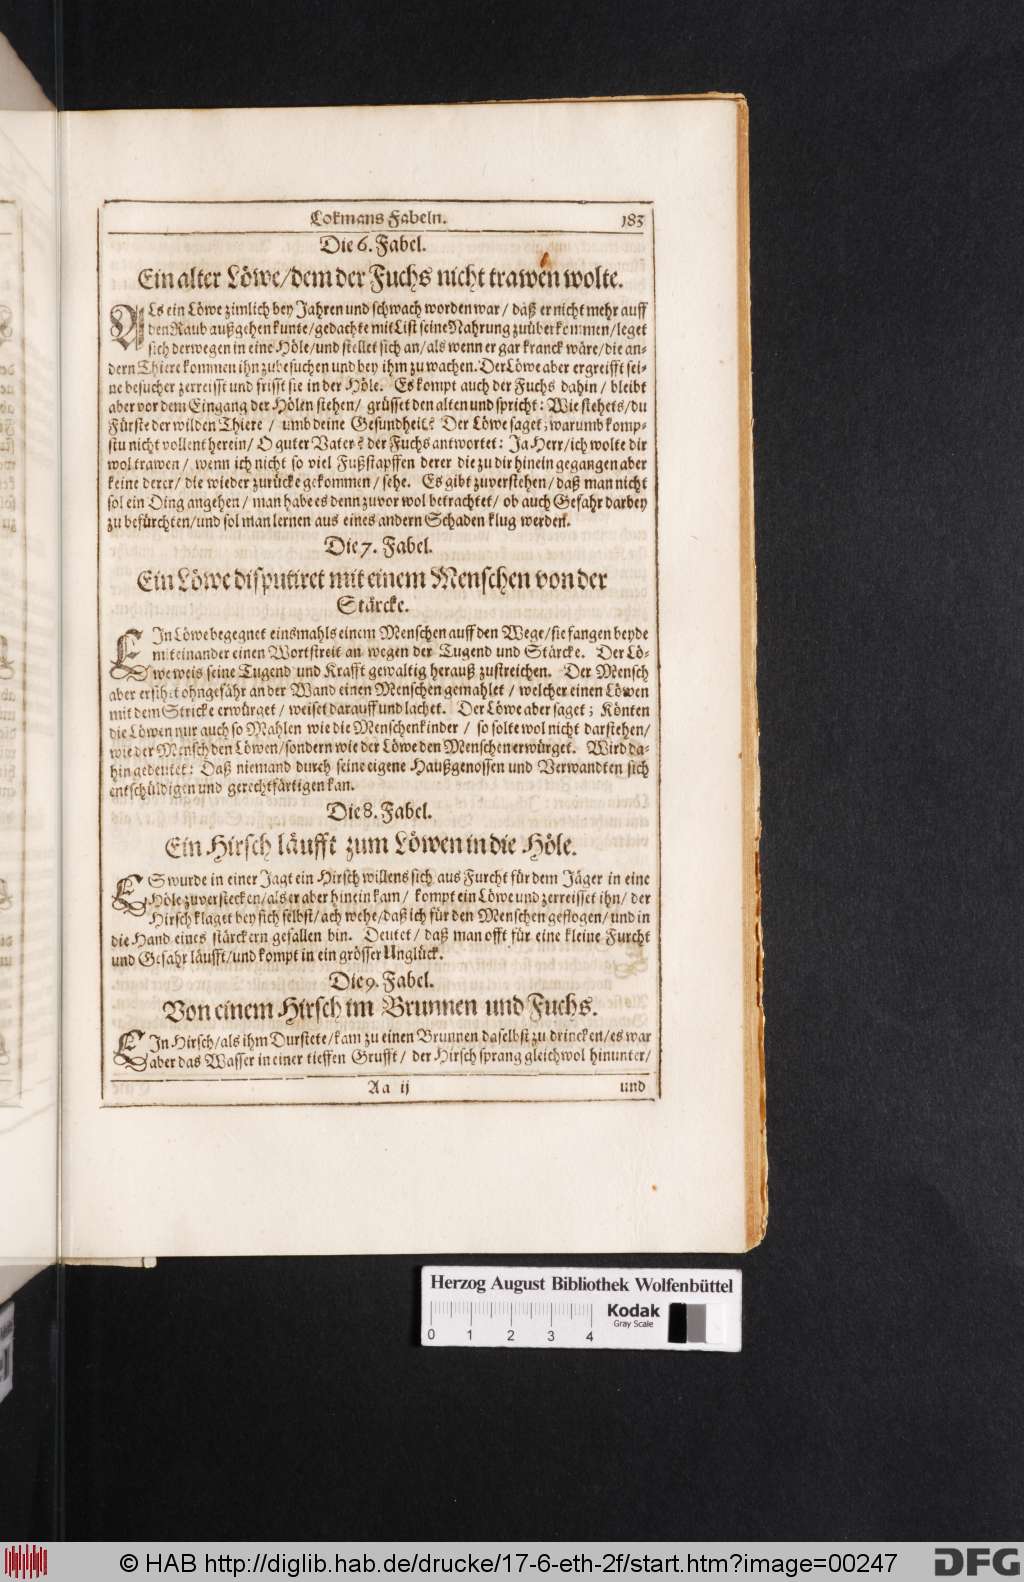 Lokmans Fabeln. 183
Die 6. Fabel.
Ein alter Löwe/dem der Fuchs nicht trawen wolte.
ALs ein Löwe zimlich bey Jahren und schwach worden war / daß er nicht mehr auff
den Raub außgehen kunte/gedachte mit List seine Nahrung zuüberkommen/leget
sich derwegen in eine Höle/und stellet sich an/als wenn er gar kranck wäre/die an-
dern Thiere kommen ihn zubesuchen und bey ihm zu wachen. Der Löwe aber ergreifft sei-
ne besucher zerreisst und frisst sie in der Höle. Es kompt auch der Fuchs dahin / bleibt
aber vor dem Eingang der Hölen stehen/ grüsset den alten und spricht: Wie stehets/du
Fürste der wilden Thiere / umb deine Gesundheit? Der Löwe saget; warumb komp-
stu nicht vollent herein/ O guter Vater? der Fuchs antwortet: Ja Herr/ich wolte dir
wol trawen / wenn ich nicht so viel Fußstapffen derer die zu dir hinein gegangen aber
keine derer/ die wieder zurücke gekommen / sehe. Es gibt zuverstehen/ daß man nicht
sol ein Ding angehen / man habe es denn zuvor wol betrachtet/ ob auch Gefahr darbey
zu befürchten/und sol man lernen aus eines andern Schaden klug werden.
Die 7. Fabel.
Ein Löwe disputiret mit einem Menschen von der
Stärcke.
EIn Löwe begegnet einsmahls einem Menschen auff den Wege/sie fangen beyde
miteinander einen Wortstreit an wegen der Tugend und Stärcke. Der Lö-
we weis seine Tugend und Krafft gewaltig herauß zustreichen. Der Mensch
aber ersihet ohngefähr an der Wand einen Menschen gemahlet / welcher einen Löwen
mit dem Stricke erwürget / weiset darauff und lachet. Der Löwe aber saget; Könten
die Löwen nur auch so Mahlen wie die Menschenkinder / so solte wol nicht darstehen/
wie der Mensch den Löwen/sondern wie der Löwe den Menschen erwürget. Wird da-
hin gedeutet: Daß niemand durch seine eigene Haußgenossen und Verwandten sich
entschüldigen und gerechtfärtigen kan.
Die 8. Fabel.
Ein Hirsch läufft zum Löwen in die Höle.
ES wurde in einer Jagt ein Hirsch willens sich aus Furcht für dem Jäger in eine
Höle zuverstecken/als er aber hinein kam/ kompt ein Löwe und zerreisset ihn/ der
Hirsch klaget bey sich selbst/ach wehe/daß ich für den Menschen geflogen/und in
die Hand eines stärckern gefallen bin. Deutet/ daß man offt für eine kleine Furcht
und Gefahr läufft/und kompt in ein grösser Unglück.
Die 9. Fabel.
Von einem Hirsch im Brunnen und Fuchs.
EIn Hirsch/als ihm Durstete/kam zu einen Brunnen daselbst zu drincken/es war
aber das Wasser in einer tieffen Grufft/ der Hirsch sprang gleichwol hinunter/
Aa ij und
Herzog August Bibliothek Wolfenbüttel
Kodak
Gray Scale
0 1 2 3 4
© HAB http://diglib.hab.de/drucke/17-6-eth-2f/start.htm?image=00247
DFG